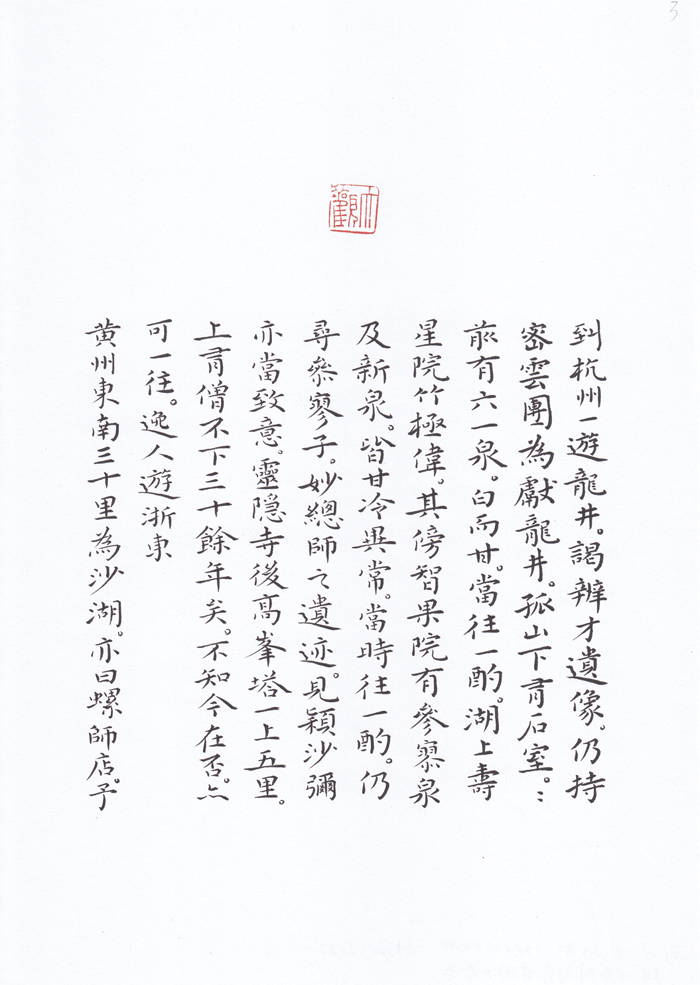 3
到杭州一遊龍井。謁辨才遺像。仍持
密雲團為獻龍井。孤山下有石室。：
前有六一泉。白而甘。當往一酌。湖上壽
星院竹極偉。其傍智果院有參寥泉
及新泉。皆甘冷異常。當時往一酌。仍
尋參寥子。妙總師之遺迹。見穎沙彌
亦當致意。靈隱寺後高峯塔一上五里。
上有僧不下三十餘年矣。不知今在否。亦
可一往。逸人遊浙東
黃州東南三十里為沙湖。亦曰螺師店。予